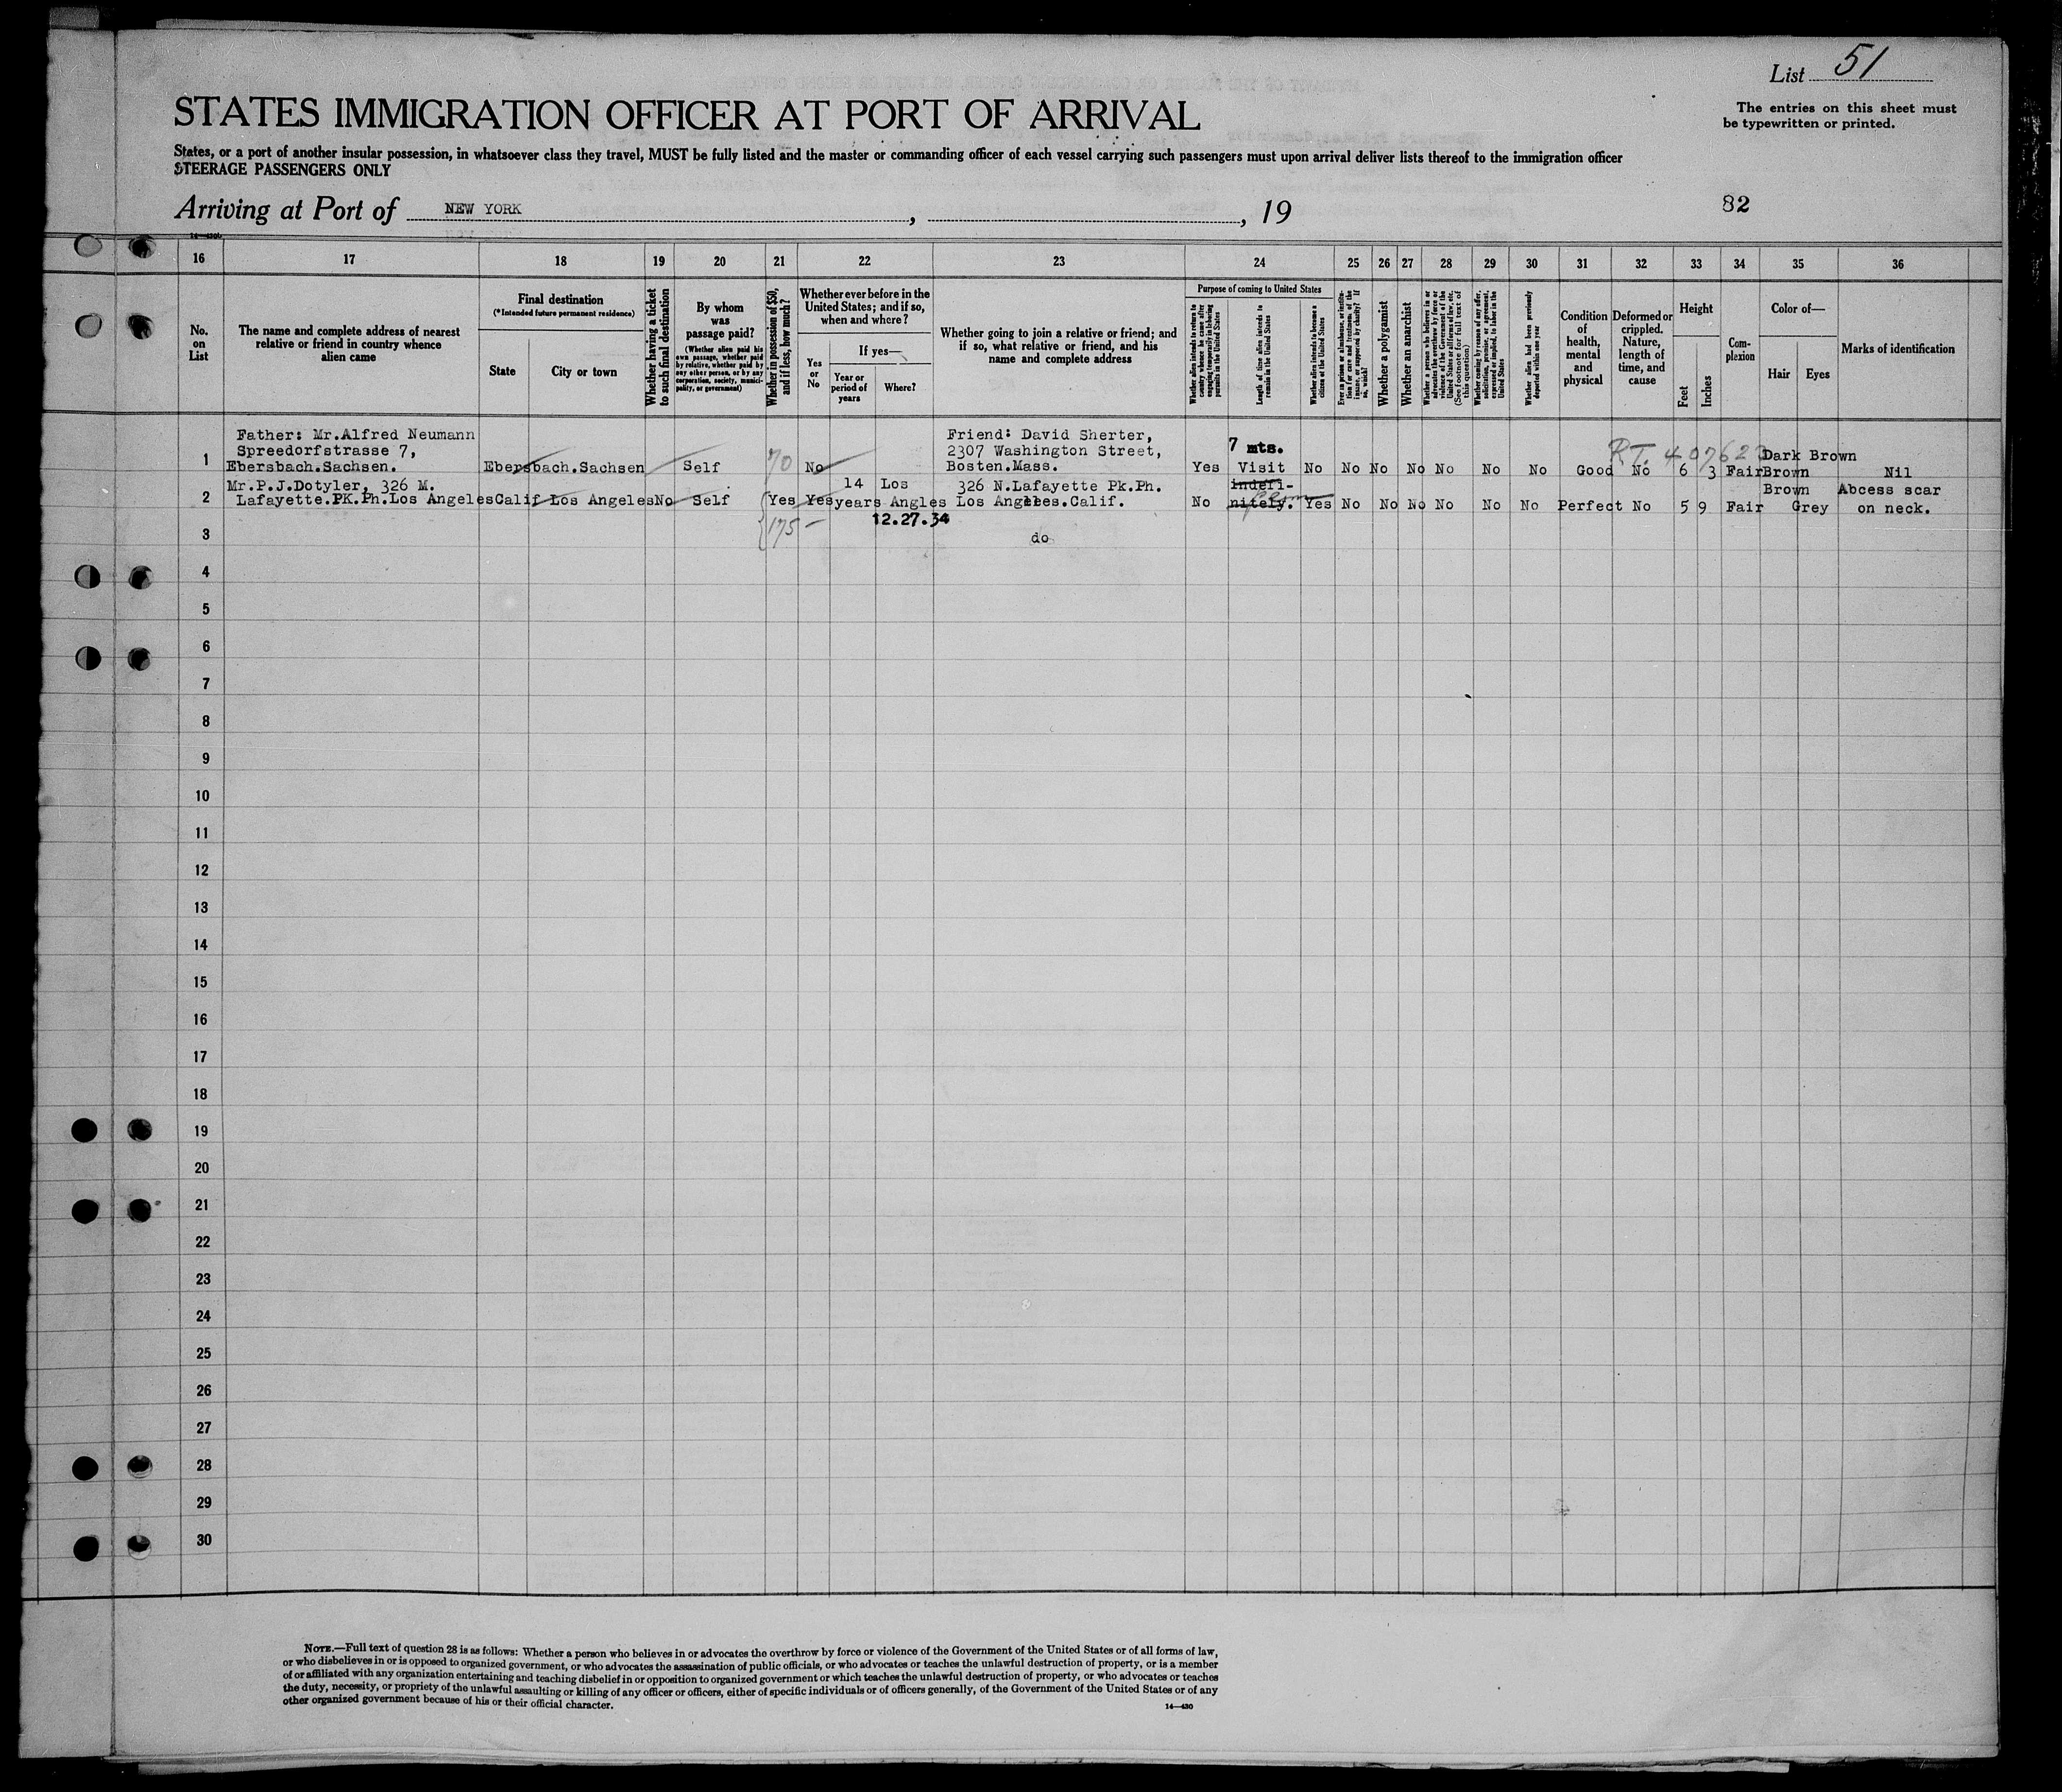 List 51
STATES IMMIGRATION OFFICER AT PORT OF ARRIVAL
The entries on this sheet must
be typewritten or printed.
States, or a port of another insular possession, in whatsoever class they travel, MUST be fully listed and the master or commanding officer of each vessel carrying such passengers must upon arrival deliver lists thereof to the immigration officer
STEERAGE PASSENGERS ONLY
Arriving at Port of NEW YORK , , 19
82
16 17 18 19 20 21 22 23 24 25 26 27 28 29 30 31 32 33 34 35 36
No.
on
List
The name and complete address of nearest
relative or friend in country whence
alien came
Final destination
(*Intended future permanent residence)
State
City or town
Whether having a ticket
to such final destination
By whom
was
passage paid?
(Whether alien paid his
own passage, whether paid
by relative, whether paid by
any other person, or by any
corporation, society, munici-
pality, or government)
Whether in possession of $50,
and if less, how much?
Whether ever before in the
United States; and if so,
when and where?
Yes
or
No
If yes—
Year or
period of
years
Where?
Whether going to join a relative or friend; and
if so, what relative or friend, and his
name and complete address
Purpose of coming to United States
Whether alien intends to return to
country whence he came after
engaging temporarily in laboring
pursuits in the United States
Length of time alien intends to
remain in the United States
Whether alien intends to become a
citizen of the United States
Ever in prison or almshouse, or institu-
tion for care and treatment of the
insane, or supported by charity? If
so, which?
Whether a polygamist
Whether an anarchist
Whether a person who believes in or
advocates the overthrow by force or
violence of the Government of the
United States or all forms of law, etc.
(See footnote for full text of
this question)
Whether coming by reason of any offer,
solicitation, promise, or agreement,
expressed or implied, to labor in the
United States
Whether alien had been previously
deported within one year
Condition
of
health,
mental
and
physical
Deformed or
crippled.
Nature,
length of
time, and
cause
Height
Feet
Inches
Com-
plexion
Color of—
Hair
Eyes
Marks of identification
1
Father: Mr.Alfred Neumann
Spreedorfstrasse 7,
Ebersbach.Sachsen.
Ebersbach.Sachsen
Self
70
No
Friend: David Sherter,
2307 Washington Street,
Bosten.Mass.
Yes
7 mts.
Visit
No No No No No No No Good No 6 3 Fair
RT. 407623
Dark Brown
Brown
Nil
2
Mr.P.J.Dotyler, 326 M.
Lafayette.PK.Ph.Los Angeles
Calif Los Angeles
No
Self
Yes
175-
Yes
14
years
Los
Angles
12.27.34
326 N.Lafayette Pk.Ph.
Los Angeles.Calif.
No
indefi-
nitely.
perm
Yes No No No No No No Perfect No 5 9 Fair
Brown
Grey
Abcess scar
on neck.
3
do
4
5
6
7
8
9
10
11
12
13
14
15
16
17
18
19
20
21
22
23
24
25
26
27
28
29
30
NOTE.—Full text of question 28 is as follows: Whether a person who believes in or advocates the overthrow by force or violence of the Government of the United States or of all forms of law,
or who disbelieves in or is opposed to organized government, or who advocates the assassination of public officials, or who advocates or teaches the unlawful destruction of property, or is a member
of or affiliated with any organization entertaining and teaching disbelief in or opposition to organized government or which teaches the unlawful destruction of property, or who advocates or teaches
the duty, necessity, or propriety of the unlawful assaulting or killing of any officer or officers, either of specific individuals or of officers generally, of the Government of the United States or of any
other organized government because of his or their official character.
14—430